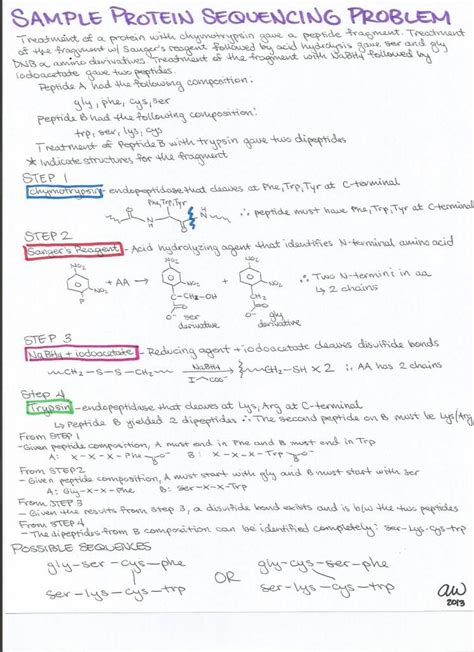 SAMPLE PROTEIN SEQUENCING PROBLEM
Treatment of a protein with chymotrypsin gave a peptide fragment. Treatment
of the fragment w/ Sanger's reagent followed by acid hydolysis gave ser and gly
DNB a amino derivatives. Treatment of the fragment with NaBH4 followed by
iodoacetate gave two peptides.
Peptide A had the following composition:
gly, phe, cys, ser
Peptide B had the following composition:
trp, ser, lys, cys
Treatment of Peptide B with trypsin gave two dipeptides
* Indicate structures for the fragment
STEP 1
Chymotrypsin - endopeptidase that cleaves at Phe, Trp, Tyr at C-terminal
Phe, Trp, Tyr
∴ peptide must have Phe, Trp, Tyr at C-terminal
STEP 2
Sanger's Reagent - Acid hydrolyzing agent that identifies N-terminal amino acid
NO2 NO2 NO2
NO2 + AA → NO2 + NO2
F
C-CH2-OH CH2
∴ Two N-termini in aa
↳ 2 chains
ser derivative
gly derivative
STEP 3
NaBH4 + iodoacetate - Reducing agent + iodoacetate cleaves disulfide bonds
CH2-S-S-CH2 NaBH4 CH2-SH X 2 ∴ AA has 2 chains
I COO-
Step 4
Trypsin - endopeptidase that cleaves at Lys, Arg at C-terminal
↳ Peptide B yielded 2 dipeptides ∴ The second peptide on B must be Lys/Arg
From STEP 1
- Given peptide composition, A must end in Phe and B must end in Trp
A: X-X-X-Phe B: X-X-X-Trp
From STEP 2
- Given peptide composition, A must start with gly and B must start with ser
A: Gly-X-X-Phe B: Ser-X-X-Trp
From STEP 3
- Given the results from step 3, a disulfide bond exists and is b/w the two peptides
From STEP 4
- The dipeptides from B composition can be identified completely: ser-Lys-Cys-trp
POSSIBLE SEQUENCES
gly-ser-cys-phe
ser-lys-cys-trp
OR
gly-cys-ser-phe
ser-lys-cys-trp
aw
2013